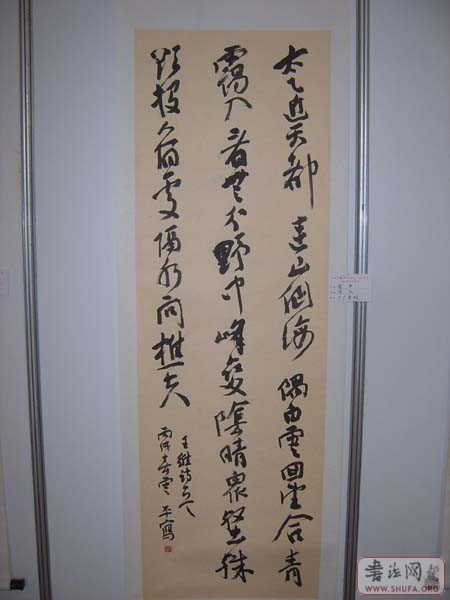 太乙近天都連山到海隅白雲回望合青
靄入看無分野中峰變陰晴衆壑殊
欲投人宿處隔水問樵夫
王維詩
丙戌 平寫
書法网
WWW.SHUFA.ORG